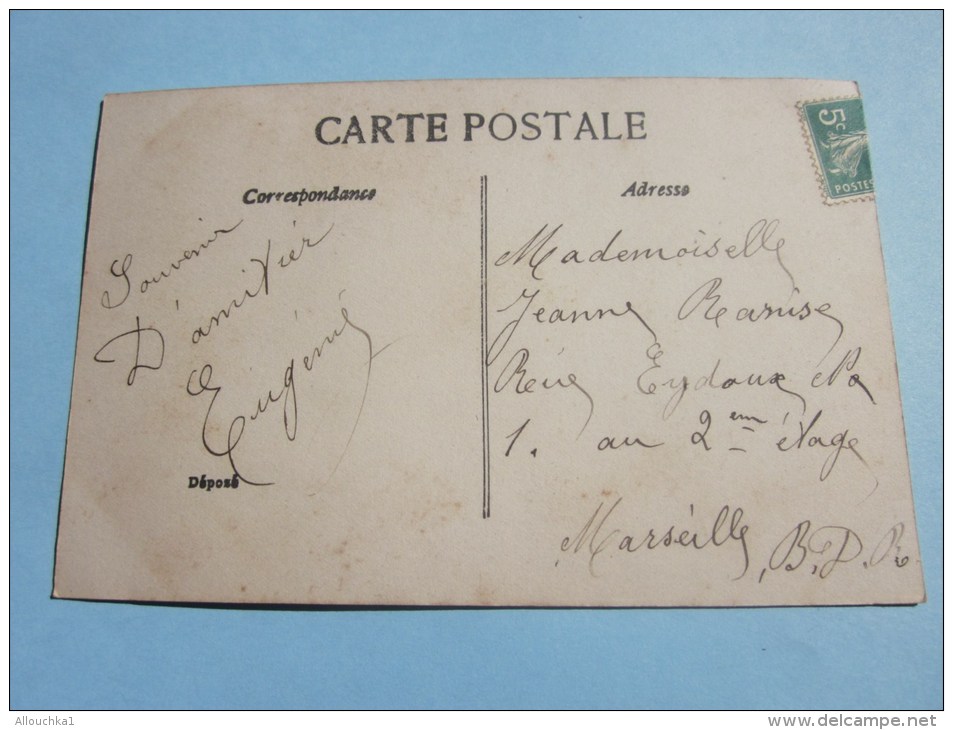 CARTE POSTALE
5c
POSTES
Correspondance
Souvenir
D'amitiér
Eugénie
Déposé
Adresse
Mademoiselle
Jeanne
Rue Eydoux No
1. au 2ème étage
Marséille, B.D.R.
Allouchka1
www.delcampe.net